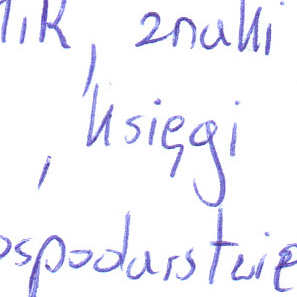 nik, znaki
, księgi
ospodarstwie